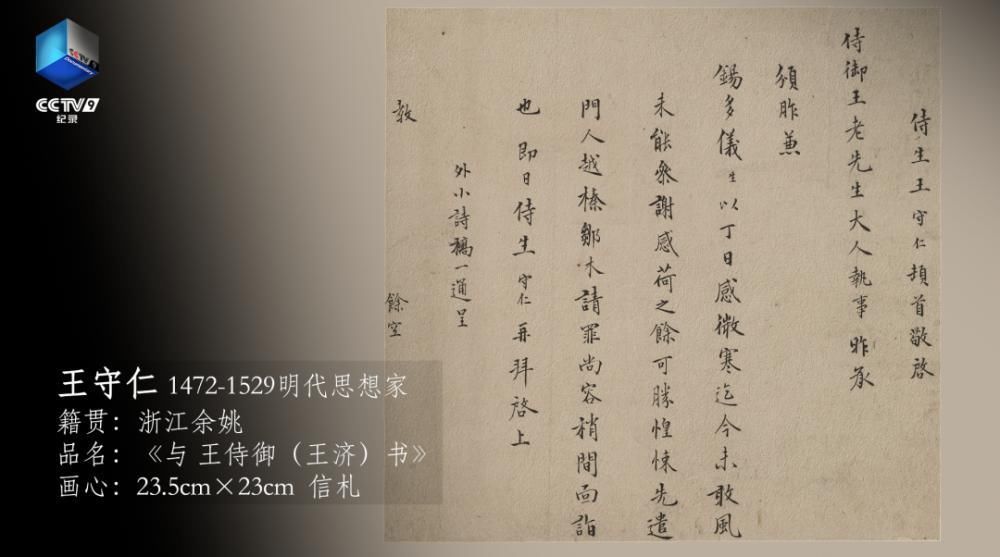 CCTV 9
Documentary
CCTV 9
纪录
侍生王守仁頓首敬啓
侍御王老先生大人執事昨承
頒胙兼
錫多儀生以丁日感微寒迄今未敢風
未能參謝感荷之餘可勝惶悚先遣
門人越榛鄒木請罪尚容稍間面詣
也即日侍生守仁再拜啓上
外小詩稿一通呈
教 餘空
王守仁 1472-1529明代思想家
籍贯：浙江余姚
品名：《与 王侍御（王济）书》
画心：23.5cm×23cm 信札